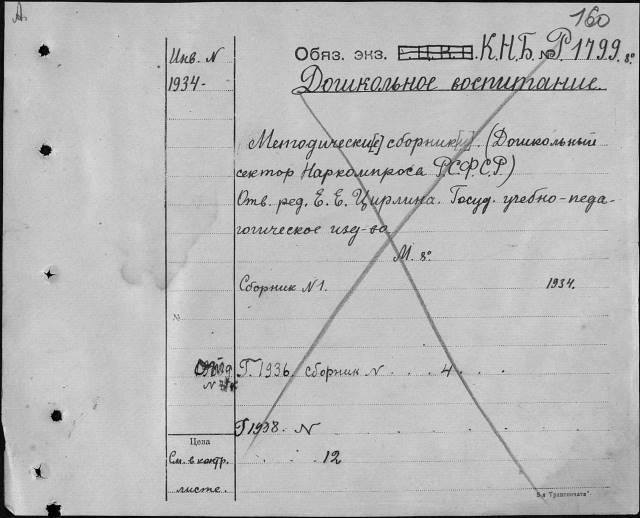 А
160
Инв. N
1934-
Обяз. экз. К.Н.Б. № Р1799 8°
Дошкольное воспитание.
Методически[е] сборник[и]. (Дошкольный
сектор Наркомпроса Р.С.Ф.С.Р.)
Отв. ред. Е. Е. Цирлина. Госуд. учебно-педа-
гогическое изд-во
М. 8°
Сборник N 1. 1934.
№
Г. 1936. сборник N . . 4 . .
N
Г 1938. N . . . . .
Цена
См. в контр. . . 12
листе.